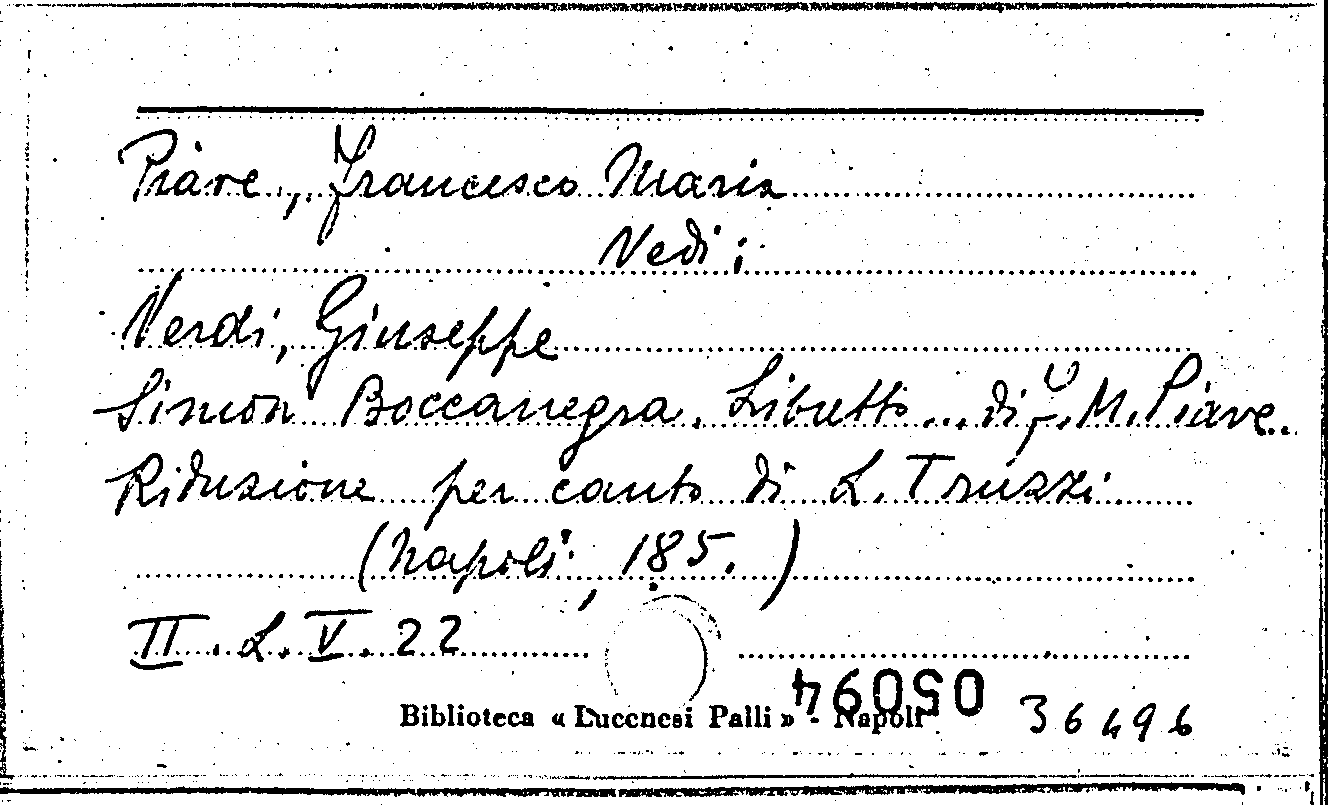 Piave, Francesco Maria
Vedi:
Verdi, Giuseppe
Simon Boccanegra. Libretto... di F. M. Piave..
Riduzione per canto di L. Truzzi
(Napoli, 185.)
II. L. V. 22
05094
Biblioteca « Lucchesi Palli » - Napoli 36496